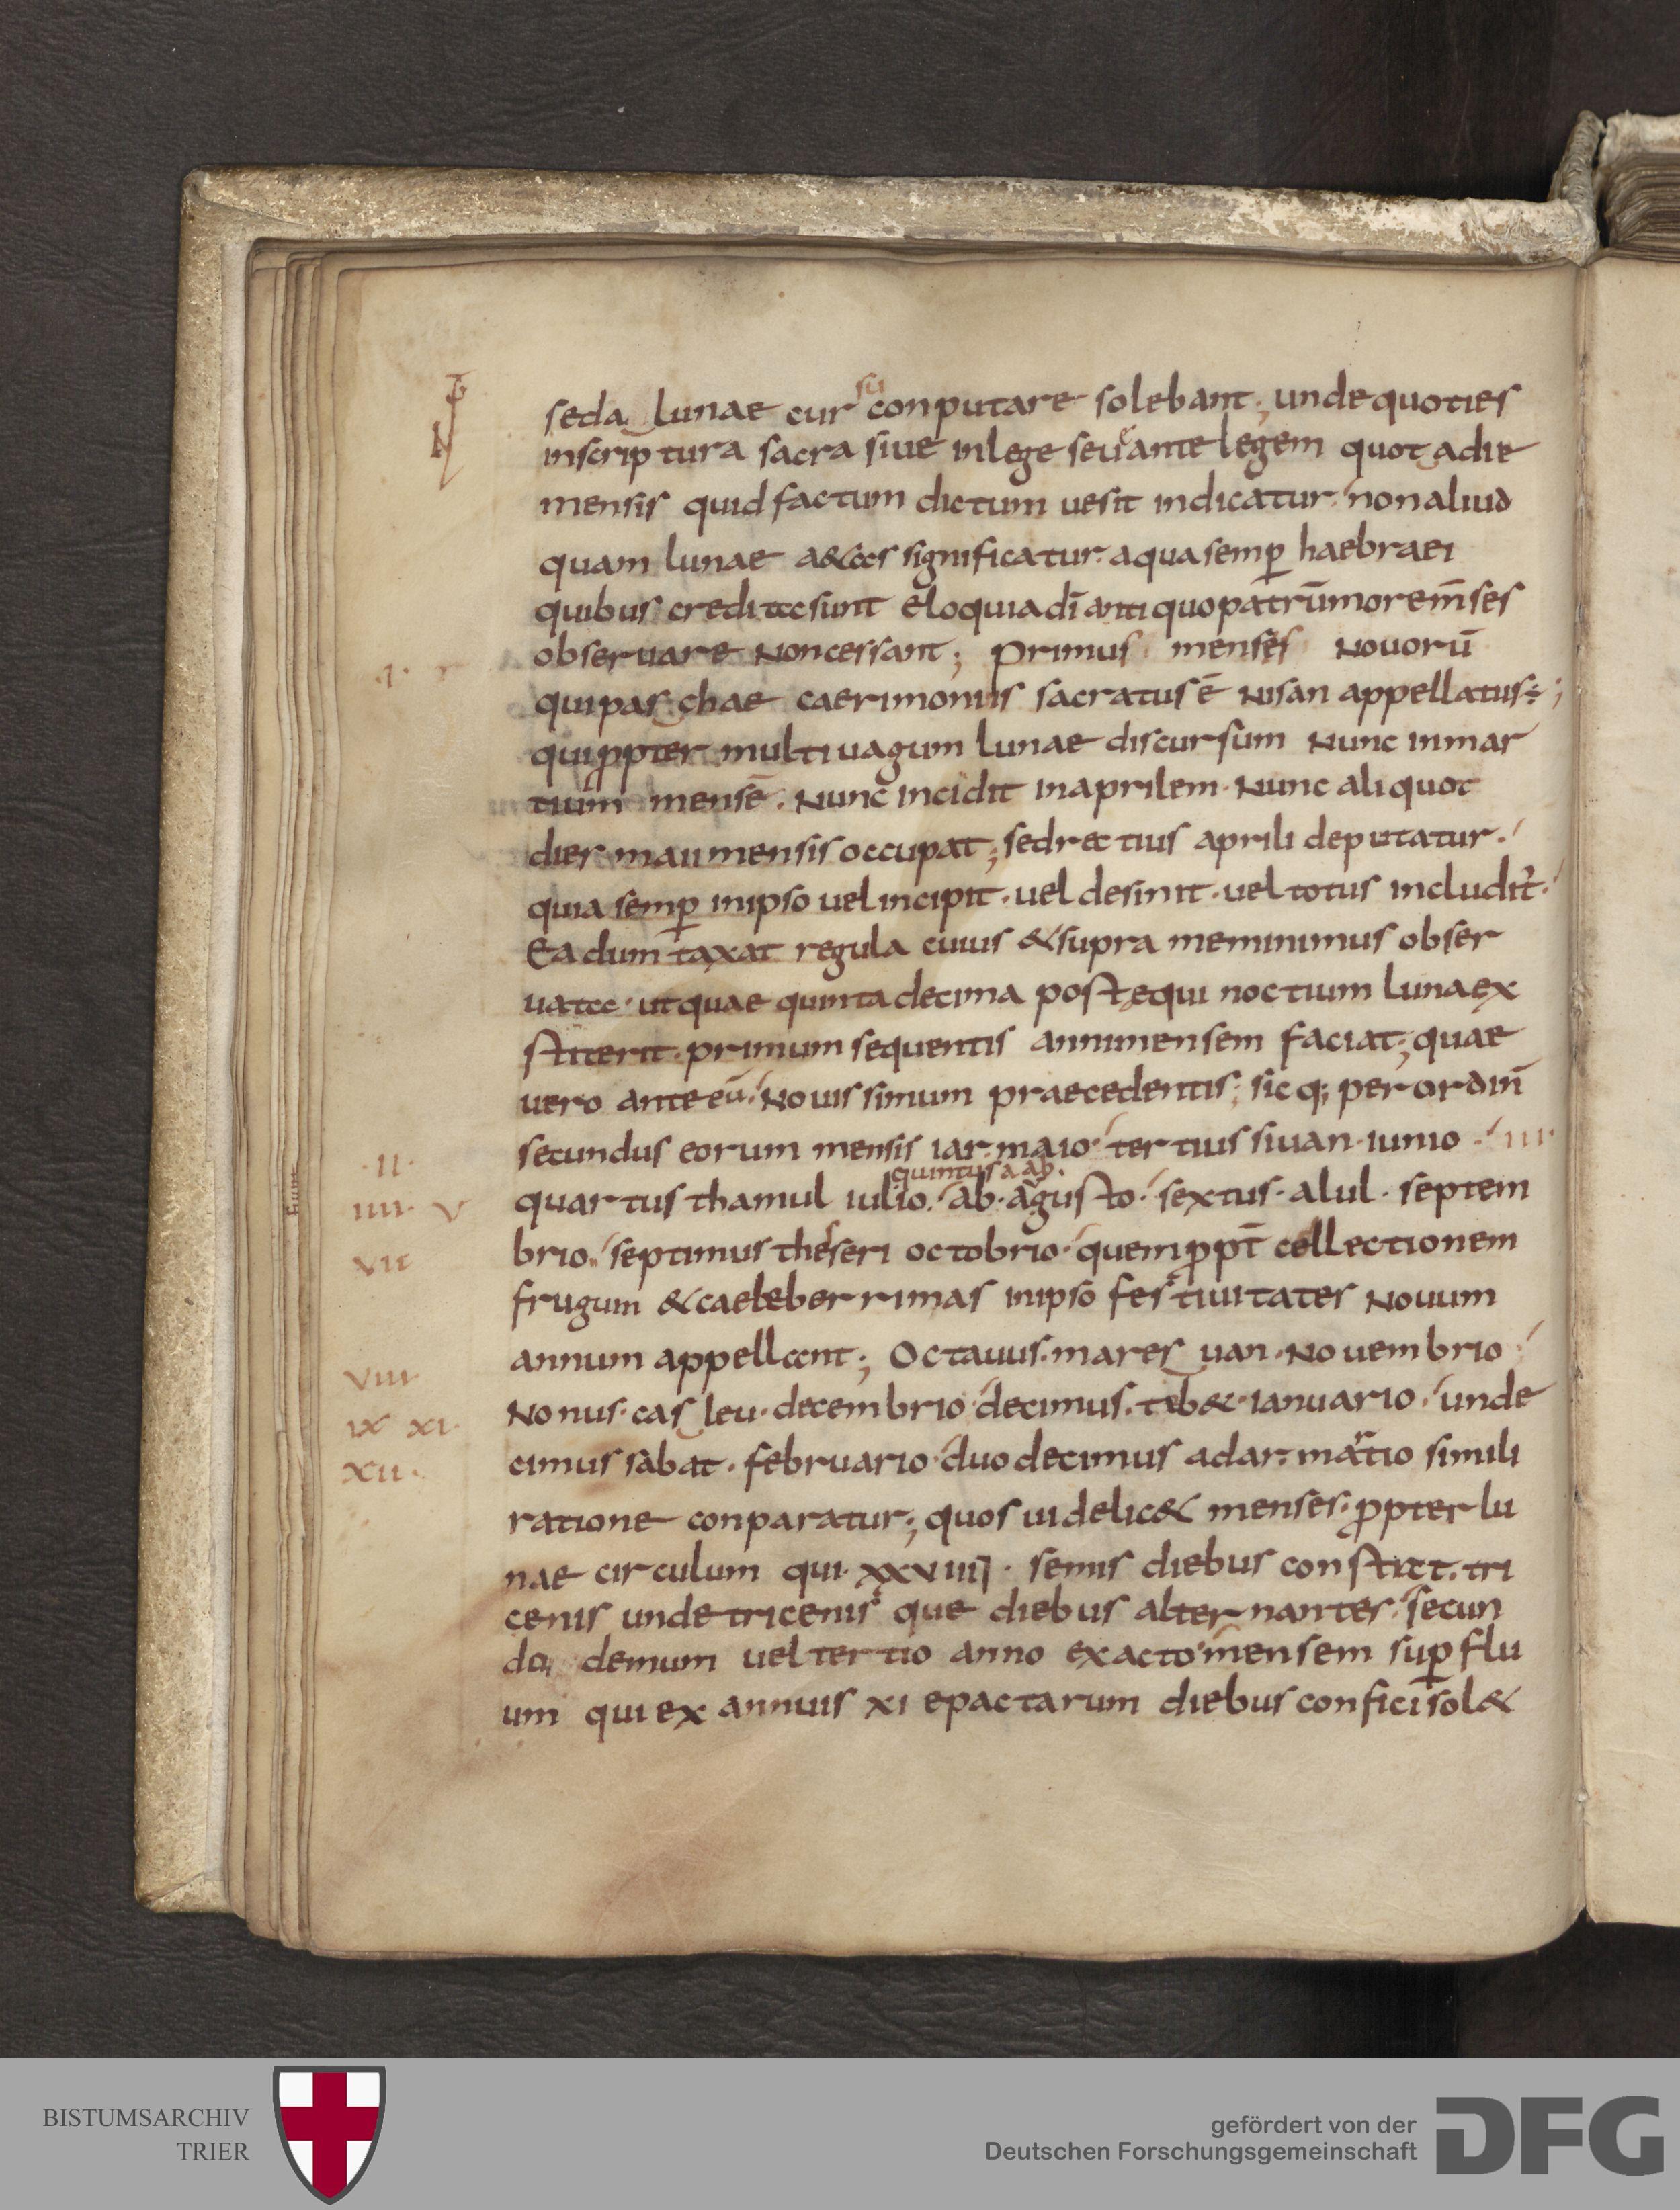 seda lunae cur su conputare solebant; unde quoties
inscriptura sacra siue inlege seu ante legem quot adie
mensis quid factum dictum uesit indicatur. non aliud
quam lunae a&as significatur. aqua semp̄ haebraei
quibus creditae sunt eloquia dī antiquo patrū more m̄ses
obseruare non cessant; Primus menses nouorū
I
qui paschae caerimoniis sacratus ē nisan appellatus;
qui ꝓpter multiuagum lunae discursum nunc inmar
tium mensē. nunc incidit inaprilem. nunc aliquot
dies maii mensis occupat; sed rectius aprili deputatur.
quia semp̄ inipso uel incipit. uel desinit. uel totus includit̃.
Ea dum taxat regula cuius & supra meminimus obser
uata. ut quae quinta decima post equinoctium luna ex
stiterit. primum sequentis anni mensem faciat; quae
uero ante eū. nouissimum praecedentis; sicq; per ordin̄
secundus eorum mensis iar. maio. tertius siuan. iunio. III
II
quintus a ab.
IIII V
quartus thamul iulio. ab. agusto. sextus. alul. septem
VII
brio. septimus theseri octobrio. quem ꝓpt̄ collectionem
frugum & caeleberrimas inipso festiuitates nouum
annum appellant; Octauus. maresuan. nouembrio
VIII
IX XI
nonus. casleu. decembrio. decimus. teb&. ianuario. unde
XII
cimus sabat. februario. duodecimus adar. martio simili
ratione conparatur; quos uidelic& menses. ꝓpter lu
nae circulum qui. xxviiij. semis diebus constat. tri
cenis undetricenis que diebus alternantes. secun
do demum uel tertio anno exacto mensem sup̄flu
um qui ex annuis xi epactarum diebus confici sol&
BISTUMSARCHIV
TRIER
gefördert von der
Deutschen Forschungsgemeinschaft
DFG